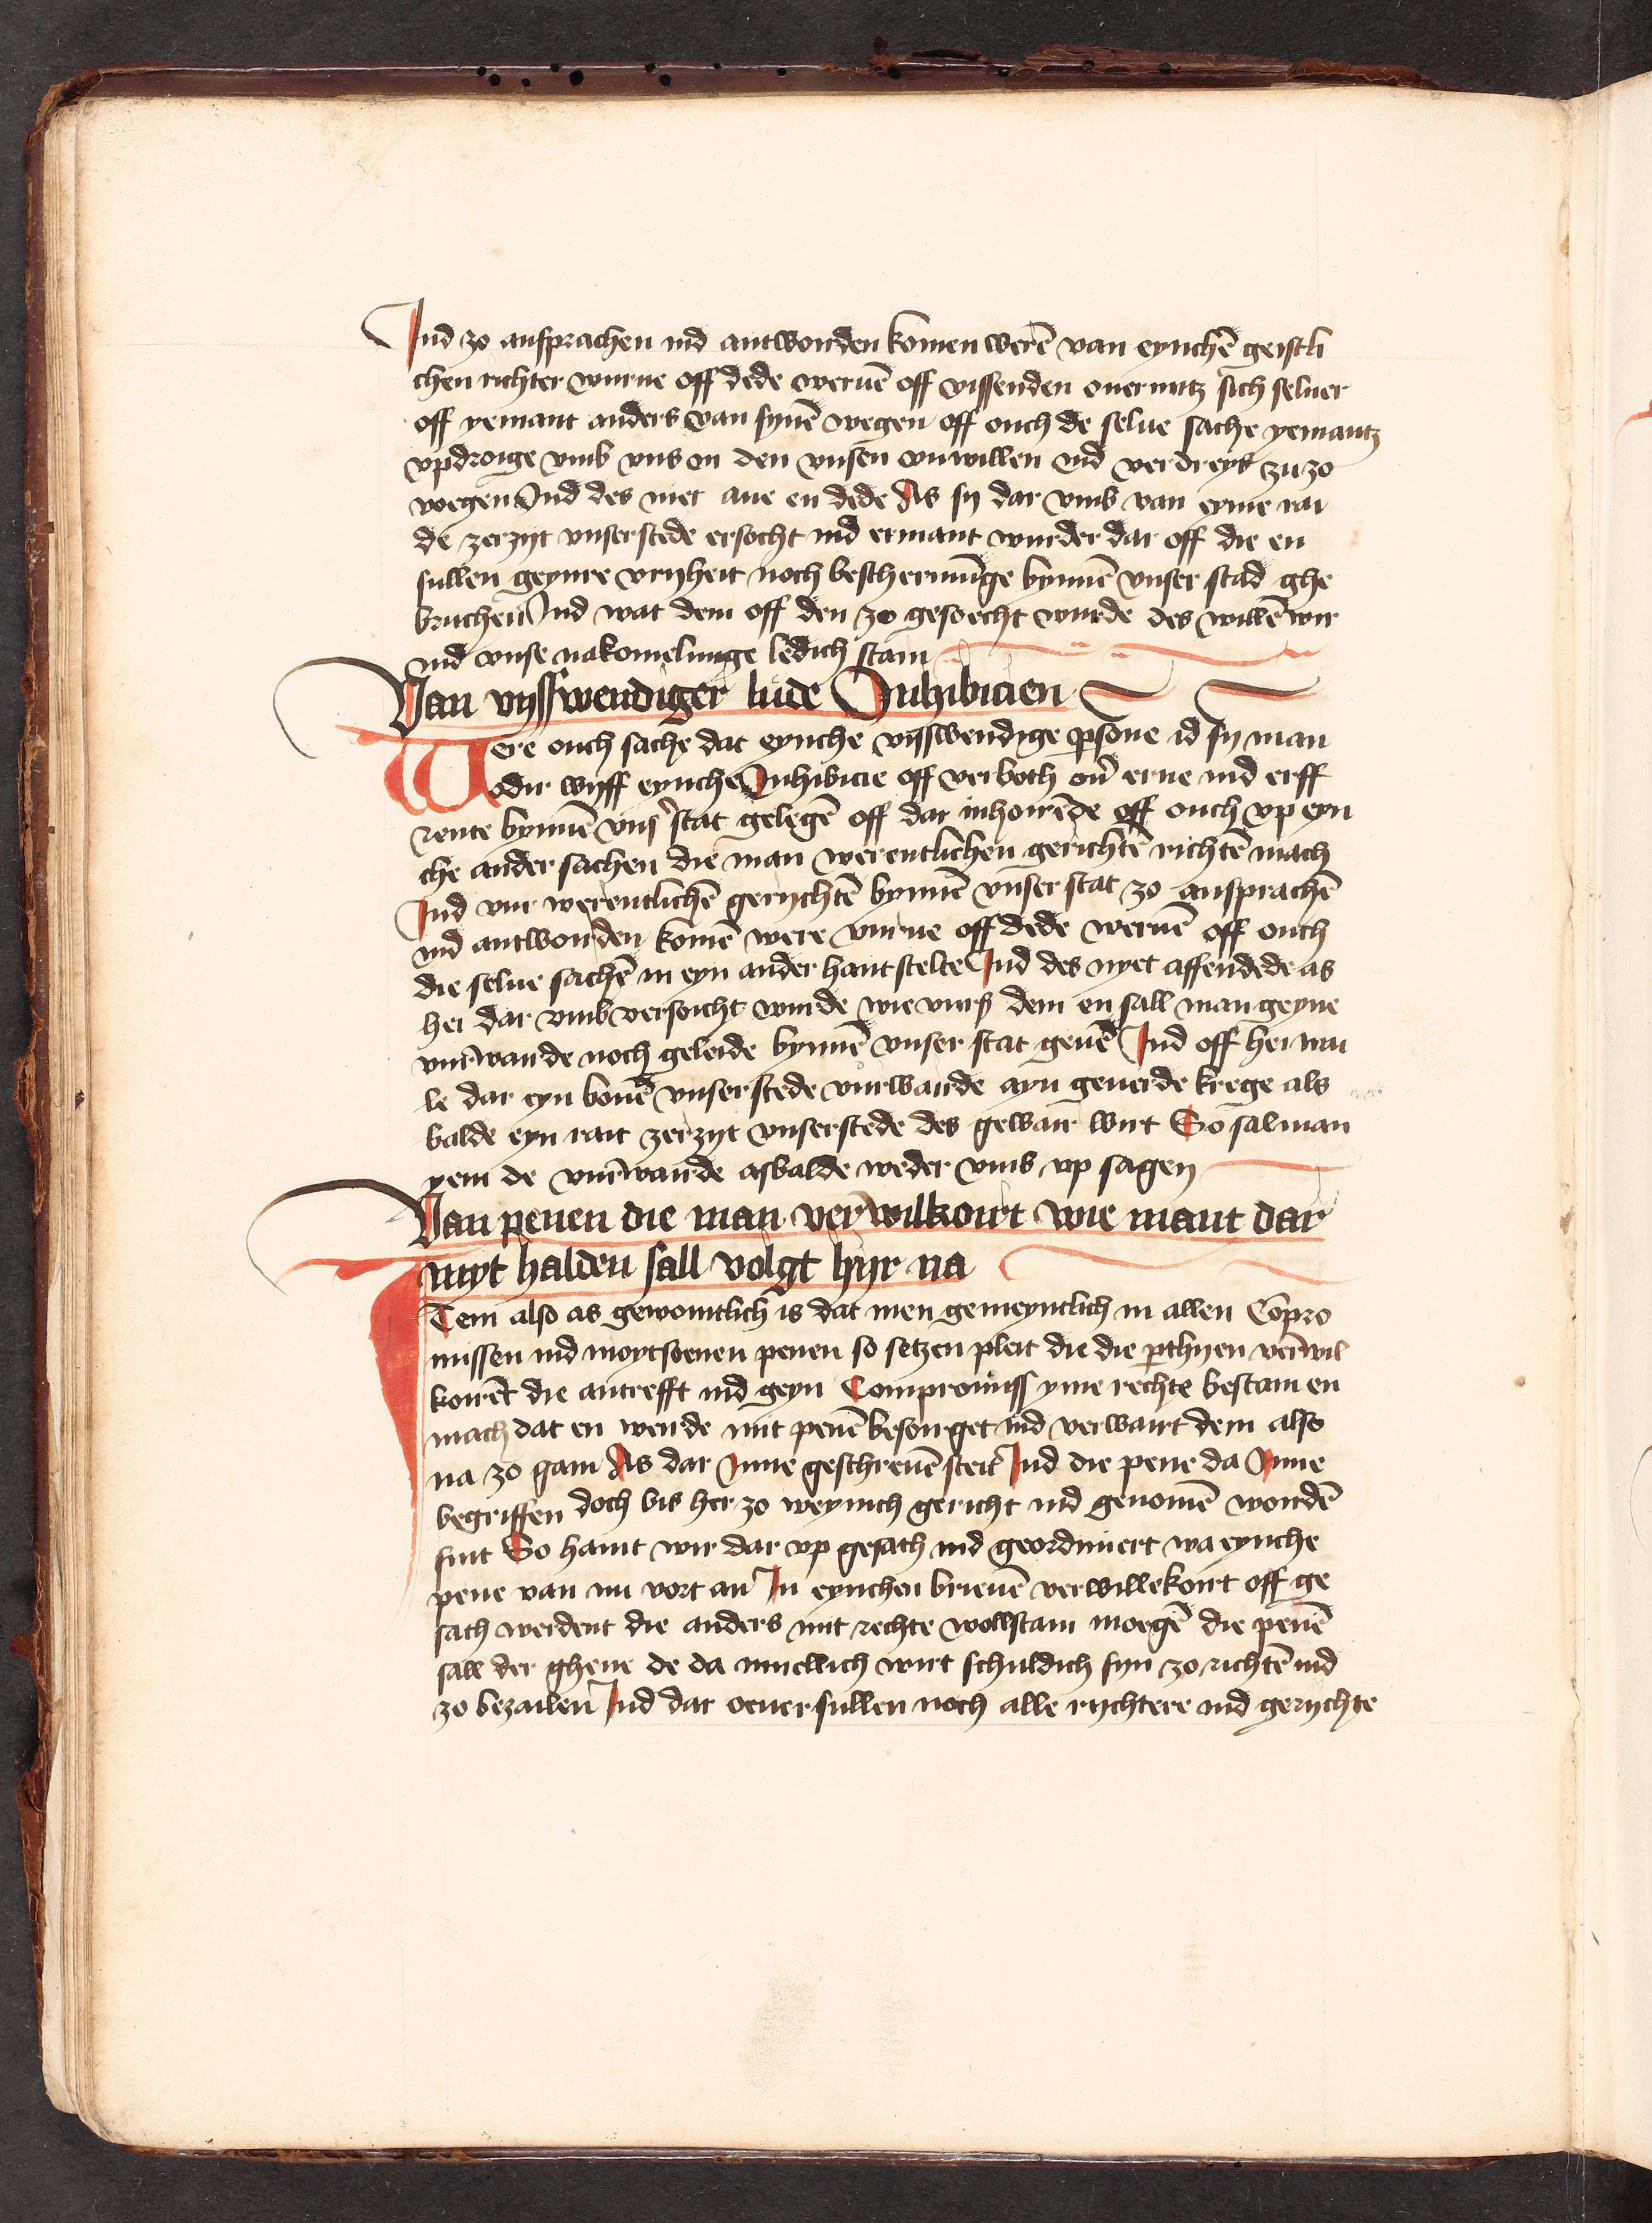 Ind zo ansprachen ind antworden komen werē van eynchē geistli
chen richter wurue off dede weruē off vissenden ouermitz sich seluer
off yemant anders van synē wegen off ouch de selue sache yemantz
vpdroige vmb vns on den vnsen vnwillen ind verdreys zu zo
wegen Ind des niet aue en dede As sy dar vmb van eyme rai
de zerzyt vnser stede ersocht ind ermant wurder dar off die en
sullen geynre vryheit noch beschermūge bynnē vnser stad ghe
bruchen Ind wat dem off den zo gesoecht wurde des willē wir
ind vnse nakomelinge ledich stain
Van vysswendiger lude Inhibicien
Were ouch sache dat eynche vysswendige psone id sy man
odir wyff eynche Inhibicie off verboth ouer erue ind erff
rente bynnē vnser stat gelegē off dar inhoirēde off ouch vp eyn
che ander sachen die man werentlichen gerichtē richtē mach
Ind vur werentlichē gerychtē bynnē vnser stat zo ansprachē
ind antworden komē were vurue off dede weruē off ouch
die selue sachē in eyn ander hant stelte Ind des nyet affendede as
hei dar vmb versoicht wurde wie vurß dem en sall man geyne
vurwarde noch geleide bynnē vnser stat geuē Ind off hei wai
le dar eyn bouē vnser stede vurwarde ayn geuerde krege als
balde eyn rait zerzyt vnser stede des gewair wirt So sal man
yem de vurwarde asbalde weder vmb vp sagen
Van penen die man verwilkoirt wie mant dar
myt halden sall volgt hyr na
Item also as gewointlich is dat men gemeyntlich in allen Cōpro
missen ind moytsoenen penen so setzen pleit die die pthyen verwil
koirēt die antrefft ind geyn Compromiss yme rechte bestain en
mach dat en werde mit penē besorget ind verwart dem also
na zo gain As dar Inne geschreuē steit Ind die pene da Inne
begriffen doch bis her zo weynich gericht ind genomē wordē
sint So haint wir dar vp gesath ind geordiniert wa eynche
pene van nu vort an In eynchen brieuē verwillekoirt off ge
sath werdent die anders mit rechte wollstain moegē die penē
sall der ghene de da vnuellich wirt schuldich syn zo richtē ind
zo bezailen Ind dar oeuer sullen noch alle rychtere ind gerychte